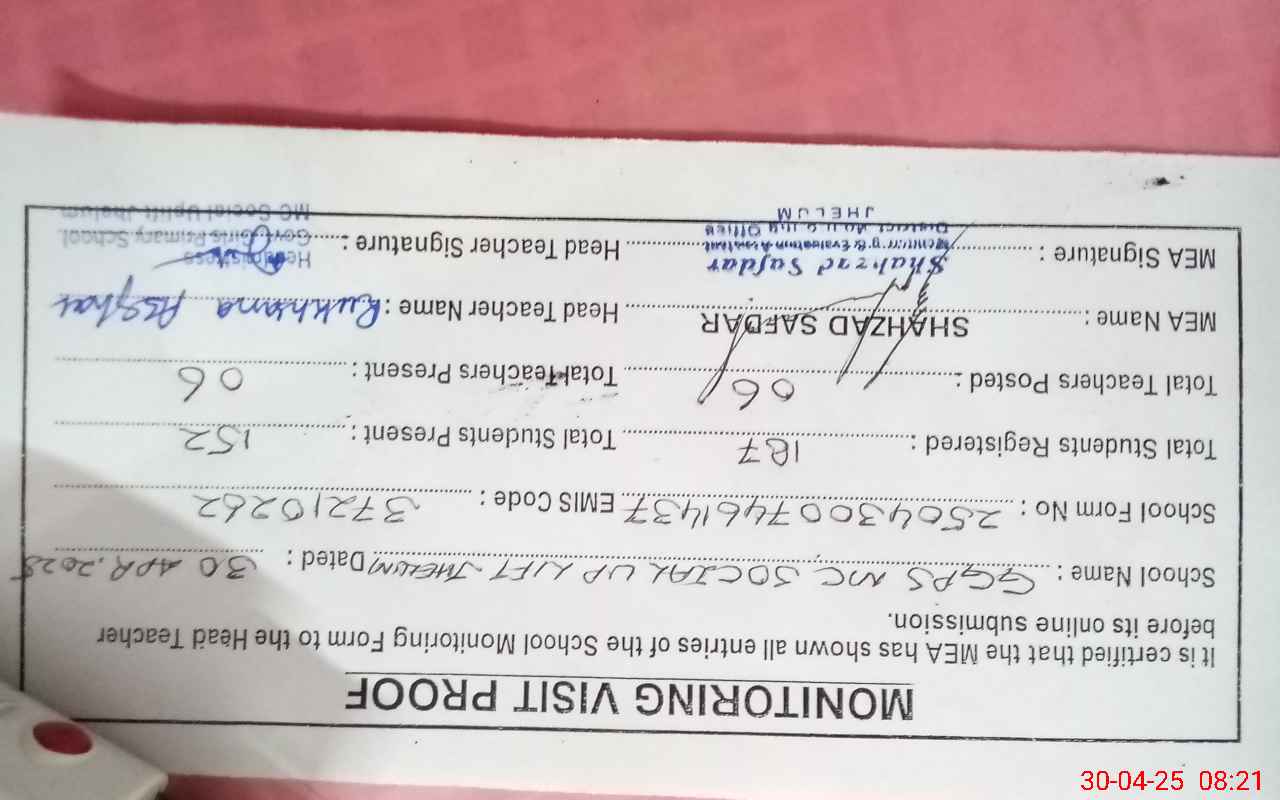 MONITORING VISIT PROOF
It is certified that the MEA has shown all entries of the School Monitoring Form to the Head Teacher
before its online submission.
School Name : GGPS MC SOCIAL UP LIFT JHELUM Dated : 30 APR. 2025
School Form No : 2504300746 1437 EMIS Code : 37210262
Total Students Registered : 187 Total Students Present : 152
Total Teachers Posted : 06 Total Teachers Present : 06
MEA Name : SHAHZAD SAFDAR Head Teacher Name : Rukhsana Asghar
MEA Signature : Head Teacher Signature :
Shahzad Safdar
Monitoring & Evaluation Assistant
District Monitoring Officer
JHELUM
Headmistress
Govt. Girls Primary School
MC Social Uplift Jhelum
30-04-25 08:21